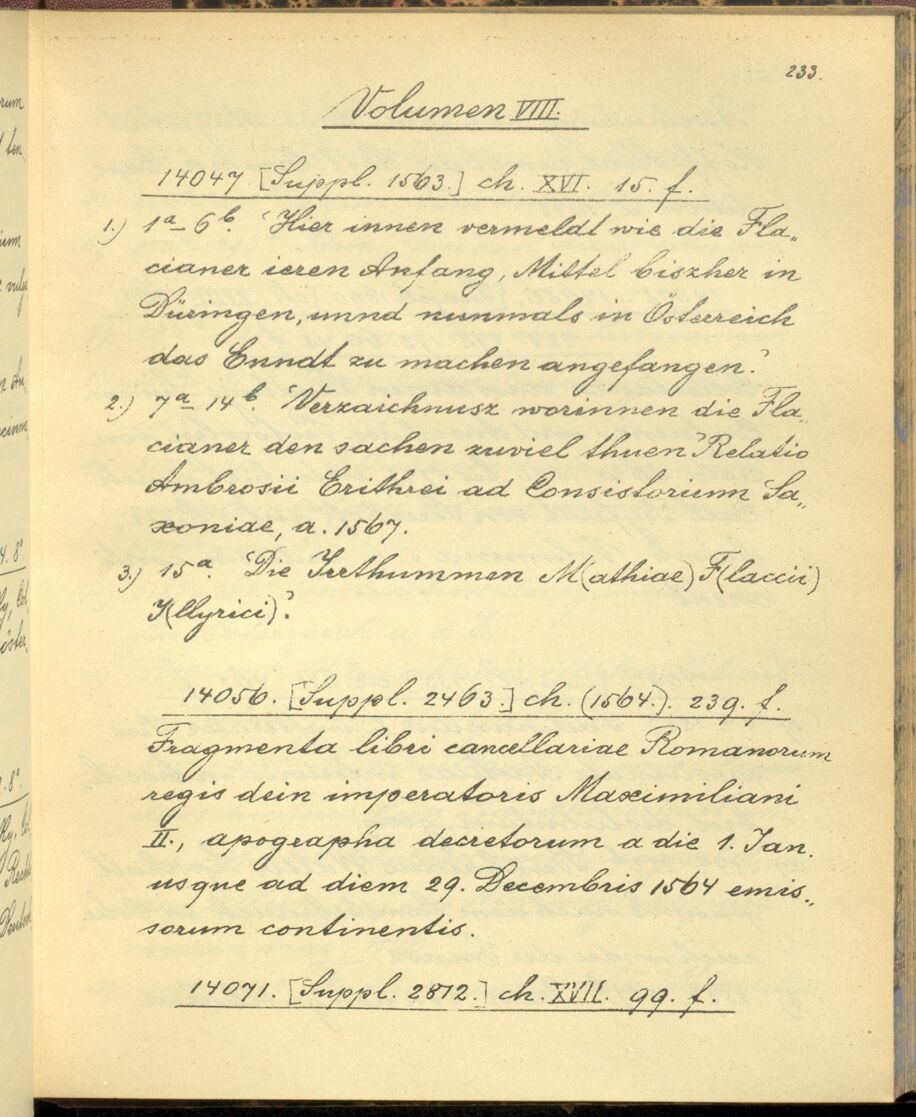 233.
Volumen VIII.
14047. [Suppl. 1563.] ch. XVI. 15. f.
1.) 1a–6b. 'Hier innen vermeldt wie die Fla„
cianer ieren Anfang, Mittel biszher in
Düringen, unnd nunmals in Österreich
das Enndt zu machen angefangen.'
2.) 7a–14b. 'Verzaichnusz worinnen die Fla„
cianer den sachen zuviel thuen' Relatio
Ambrosii Erithrei ad Consistorium Sa„
xoniae, a. 1567.
3.) 15a. 'Die Irrthummen M(athiae) F(laccii)
I(llyrici)'.
14056. [Suppl. 2463.] ch. (1564.). 239. f.
Fragmenta libri cancellariae Romanorum
regis dein imperatoris Maximiliani
II., apographa decretorum a die 1. Jan.
usque ad diem 29. Decembris 1564 emis„
sorum continentis.
14071. [Suppl. 2872.] ch. XVII. 99. f.